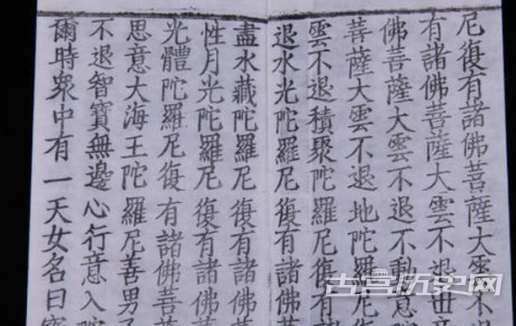 尼復有諸佛菩薩大雲不
有諸佛菩薩大雲不退世
佛菩薩大雲不退不動意
菩薩大雲不退地陀羅尼
雲不退積聚陀羅尼復有
退水光陀羅尼復有諸佛
盡水藏陀羅尼復有諸佛
性月光陀羅尼復有諸佛
光體陀羅尼復有諸佛菩
思意大海王陀羅尼善男
不退智寶無邊心行意入
爾時眾中有一天女名曰
古宫历史网